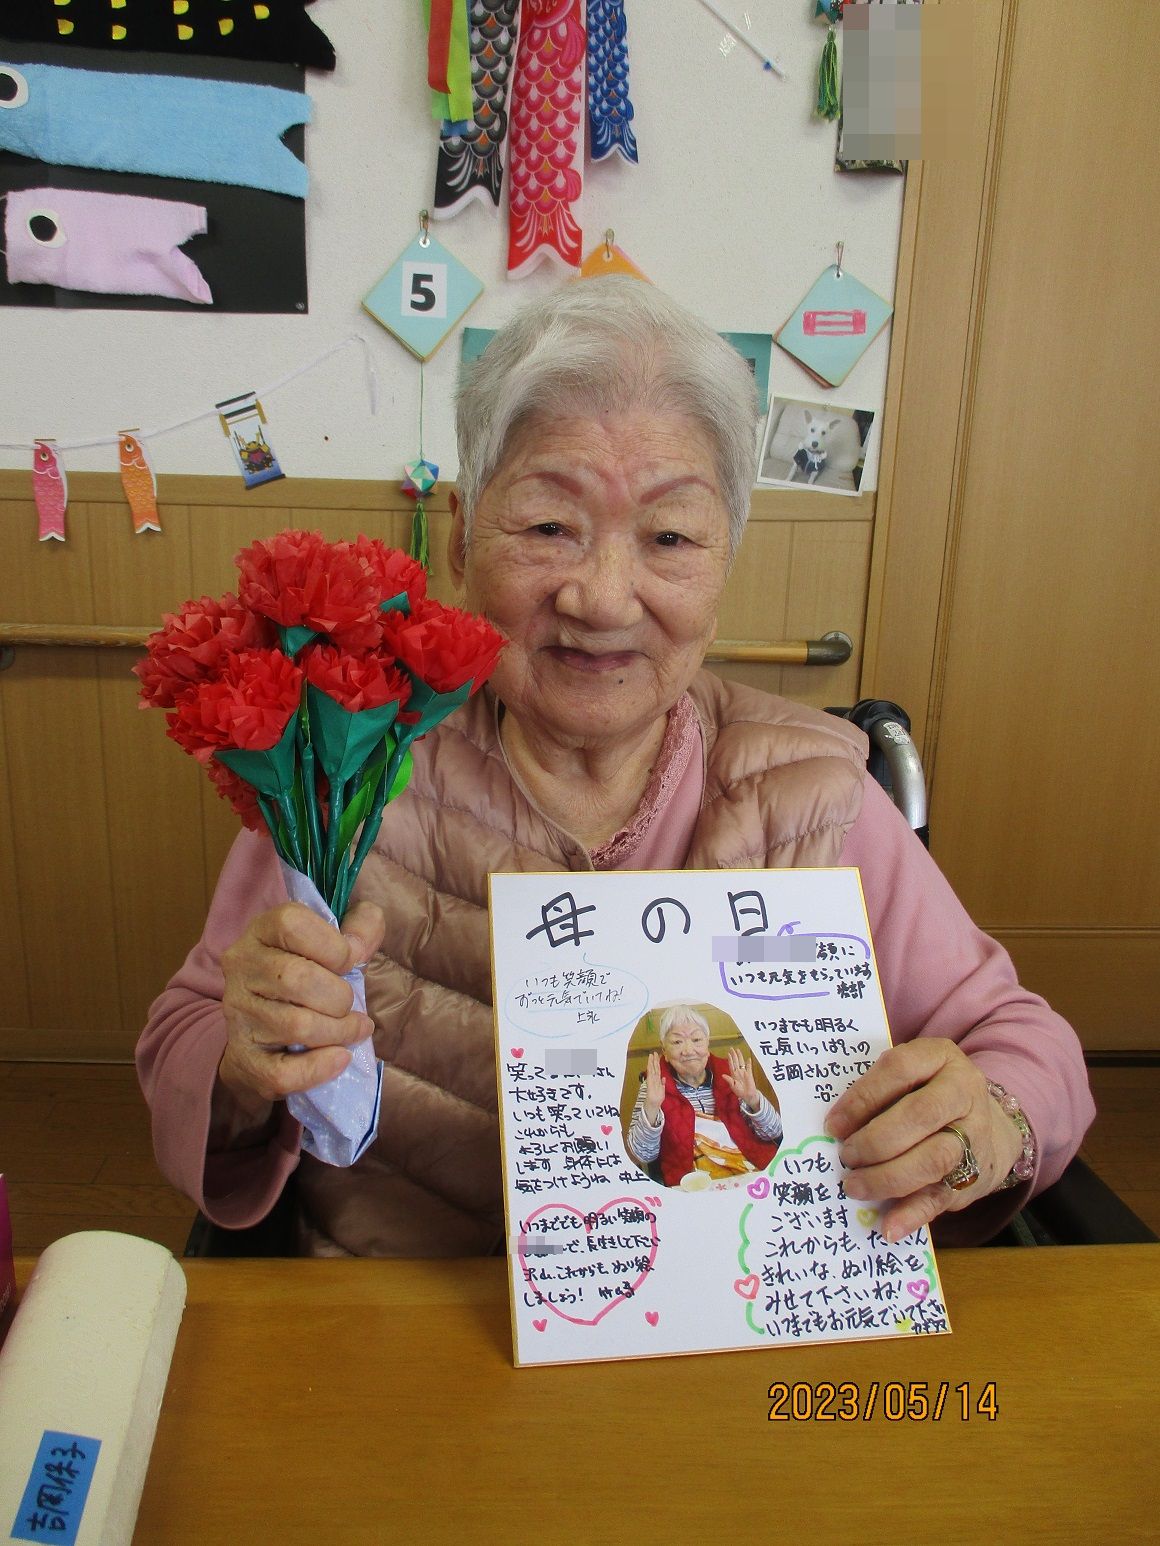 5
母の日
笑顔に
いつも元気をもらっています
いつも笑顔で
ずっと元気でいてね!
いつまでも明るく
元気いっぱいの
吉岡さんでいて
笑って さん
大好きです。
いつも笑っていてね
これからも
よろしくお願い
します 身体には
気をつけようね 中上
いつも、
笑顔を
ございます
これからも、たくさん
きれいな、ぬり絵を
みせて下さいね!
いつまでもお元気でいて下さい
いつまでも明るい笑顔の
で、長生きして下さい
これからも、ぬり絵
しましょう!
2023/05/14